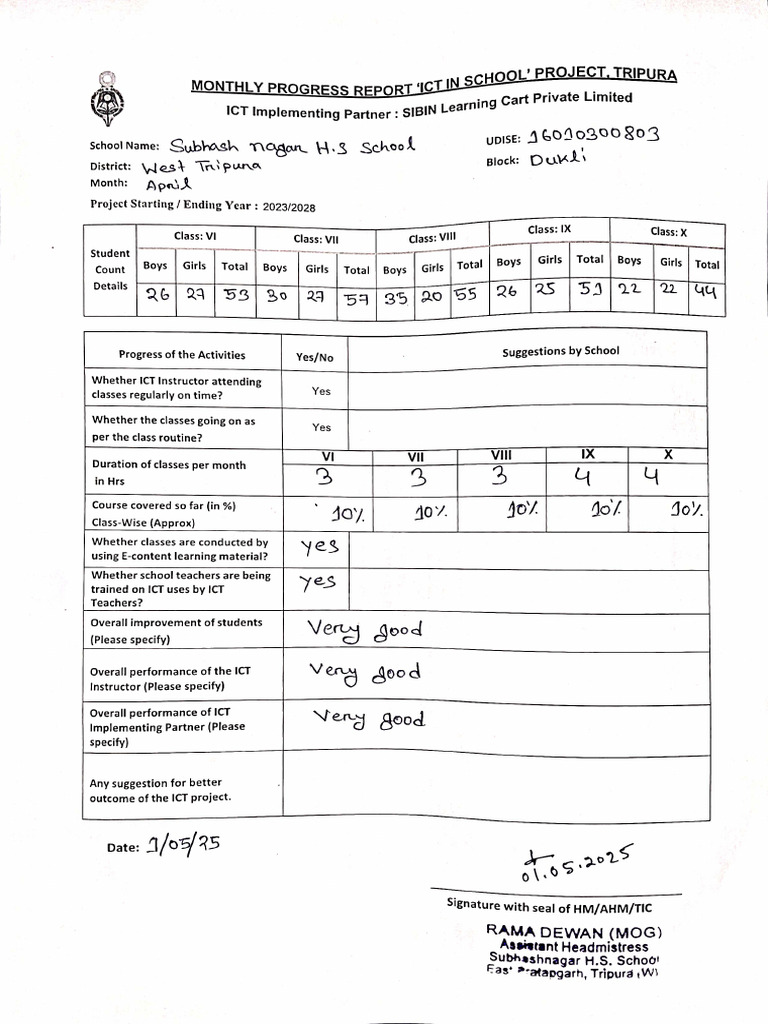 MONTHLY PROGRESS REPORT 'ICT IN SCHOOL' PROJECT, TRIPURA
ICT Implementing Partner : SIBIN Learning Cart Private Limited
School Name: Subhash nagar H.S School UDISE: 16010300803
District: West Tripura Block: Dukli
Month: April
Project Starting / Ending Year : 2023/2028
Student Count Details Class: VI Class: VII Class: VIII Class: IX Class: X
Boys Girls Total Boys Girls Total Boys Girls Total Boys Girls Total Boys Girls Total
26 27 53 30 27 57 35 20 55 26 25 51 22 22 44
Progress of the Activities Yes/No Suggestions by School
Whether ICT Instructor attending
classes regularly on time? Yes
Whether the classes going on as
per the class routine? Yes
VI VII VIII IX X
Duration of classes per month
in Hrs 3 3 3 4 4
Course covered so far (in %)
Class-Wise (Approx) 10% 10% 10% 10% 10%
Whether classes are conducted by
using E-content learning material? yes
Whether school teachers are being
trained on ICT uses by ICT
Teachers? yes
Overall improvement of students
(Please specify) Very good
Overall performance of the ICT
Instructor (Please specify) Very good
Overall performance of ICT
Implementing Partner (Please
specify) Very good
Any suggestion for better
outcome of the ICT project.
Date: 1/05/25
01.05.2025
Signature with seal of HM/AHM/TIC
RAMA DEWAN (MOG)
Assistant Headmistress
Subhashnagar H.S. School
East Pratapgarh, Tripura (W)